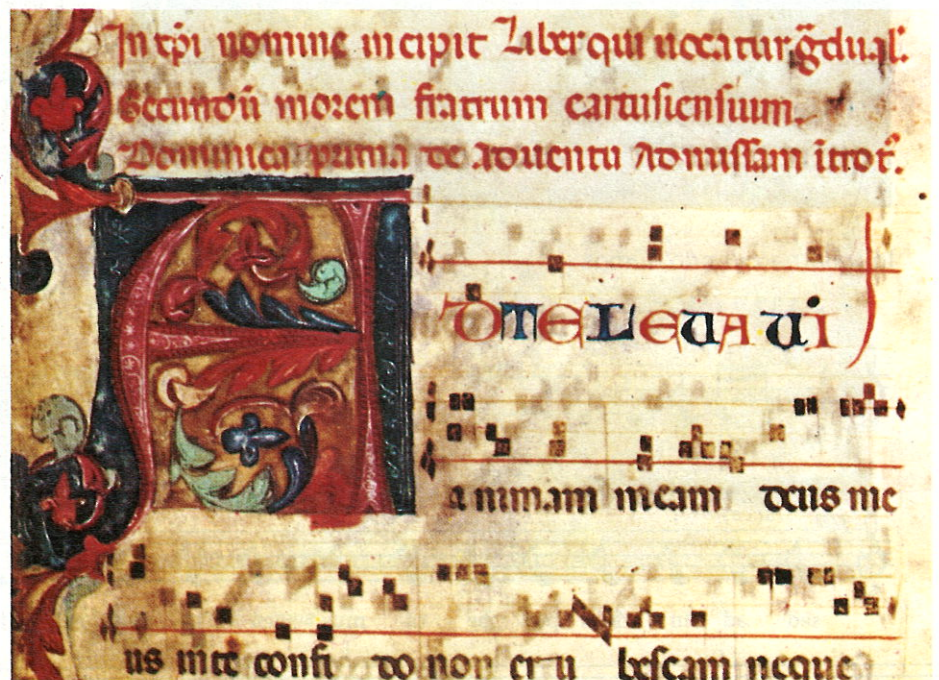 In xp̄i nomine incipit Liber qui uocatur g̃dual'.
Secundũ morem fratrum cartusiensium.
Dominica prima de aduentu Ad missam ĩtrot̃.
AD TE LEVAVI
animam meam deus me
us in te confido non erubescam neque